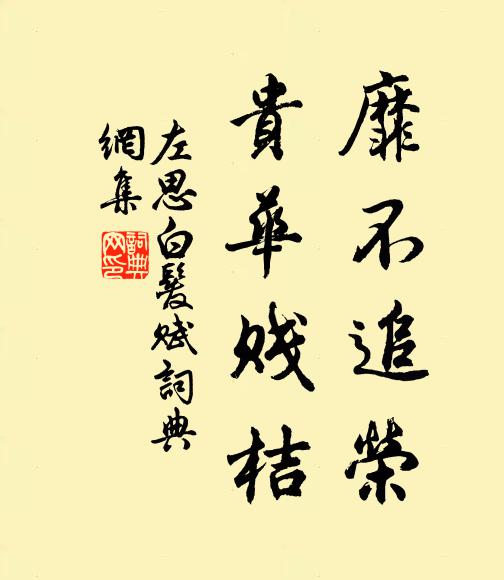 靡不追榮
貴華賤桔
左思白髮賦詞典
網集
詞典
网印